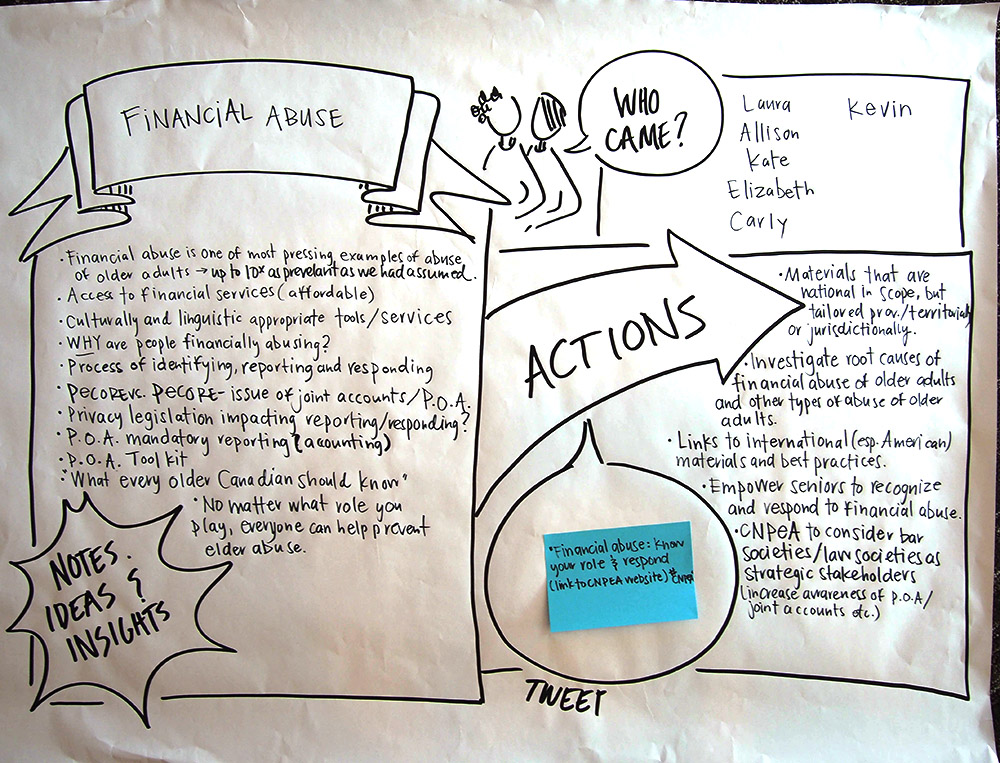 FINANCIAL ABUSE
WHO
CAME?
Laura
Allison
Kate
Elizabeth
Carly
Kevin
• Financial abuse is one of most pressing examples of abuse
of older adults → up to 10x as prevelant as we had assumed.
• Access to financial services (affordable)
• Culturally and linguistic appropriate tools/services
• WHY are people financially abusing?
• Process of identifying, reporting and responding
• PECORE vs. PECORE - issue of joint accounts/P.O.A.
• Privacy legislation impacting reporting/responding?
• P.O.A. mandatory reporting (acounting)
• P.O.A. Tool kit
• "What every older Canadian should know"
• No matter what role you
play, everyone can help prevent
elder abuse.
NOTES.
IDEAS &
INSIGHTS
ACTIONS
• Materials that are
national in scope, but
tailored prov./territorially
or jurisdictionally.
• Investigate root causes of
financial abuse of older adults
and other types of abuse of older
adults.
• Links to international (esp. American)
materials and best practices.
• Empower seniors to recognize
and respond to financial abuse.
• CNPEA to consider bar
societies/law societies as
strategic stakeholders
(increase awareness of P.O.A/
joint accounts etc.)
"Financial abuse: Know
your role & respond
(link to CNPEA website) #CNPEA
TWEET